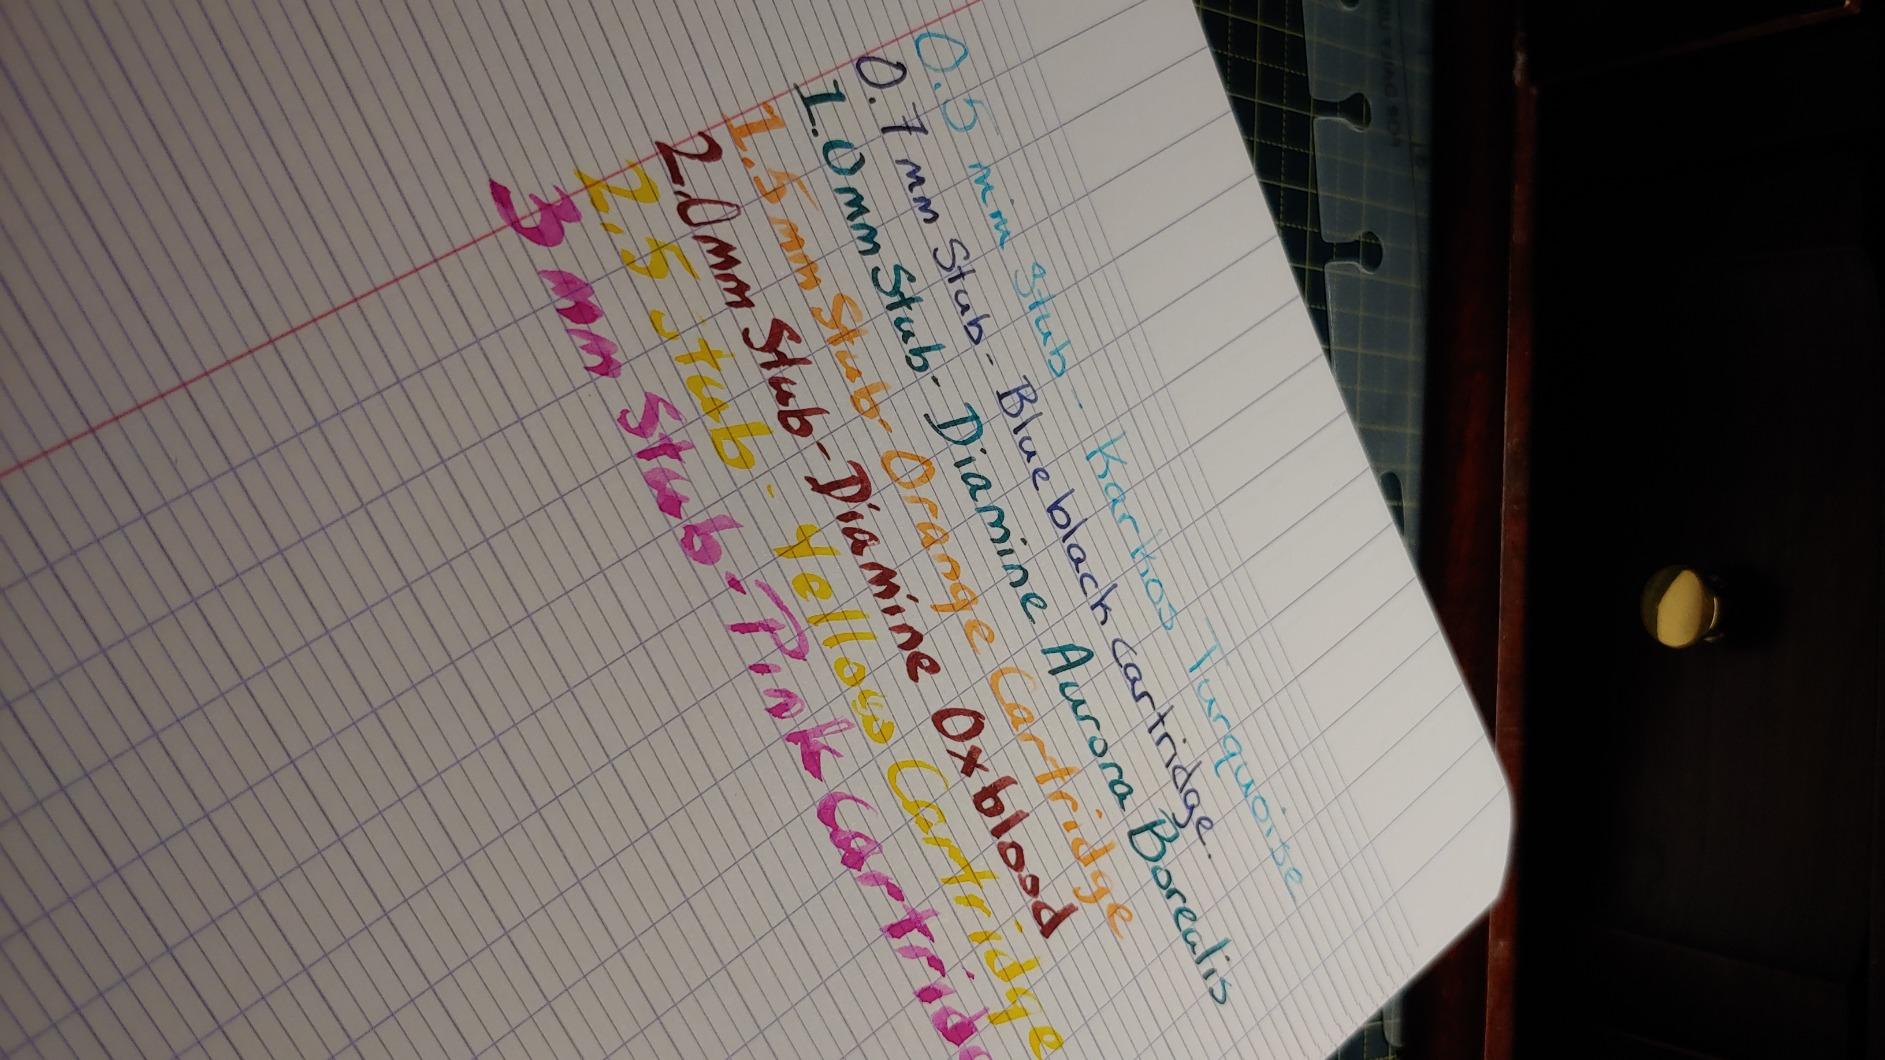 0.5 mm stub - Karkos Turquoise
0.7 mm Stub - Blue black cartridge.
1.0mm Stub - Diamine Aurora Borealis
1.5 mm Stub - Orange Cartridge
2.0mm Stub - Diamine Oxblood
2.5 stub - Yellow Cartridge
3 mm Stub - Pink Cartridg